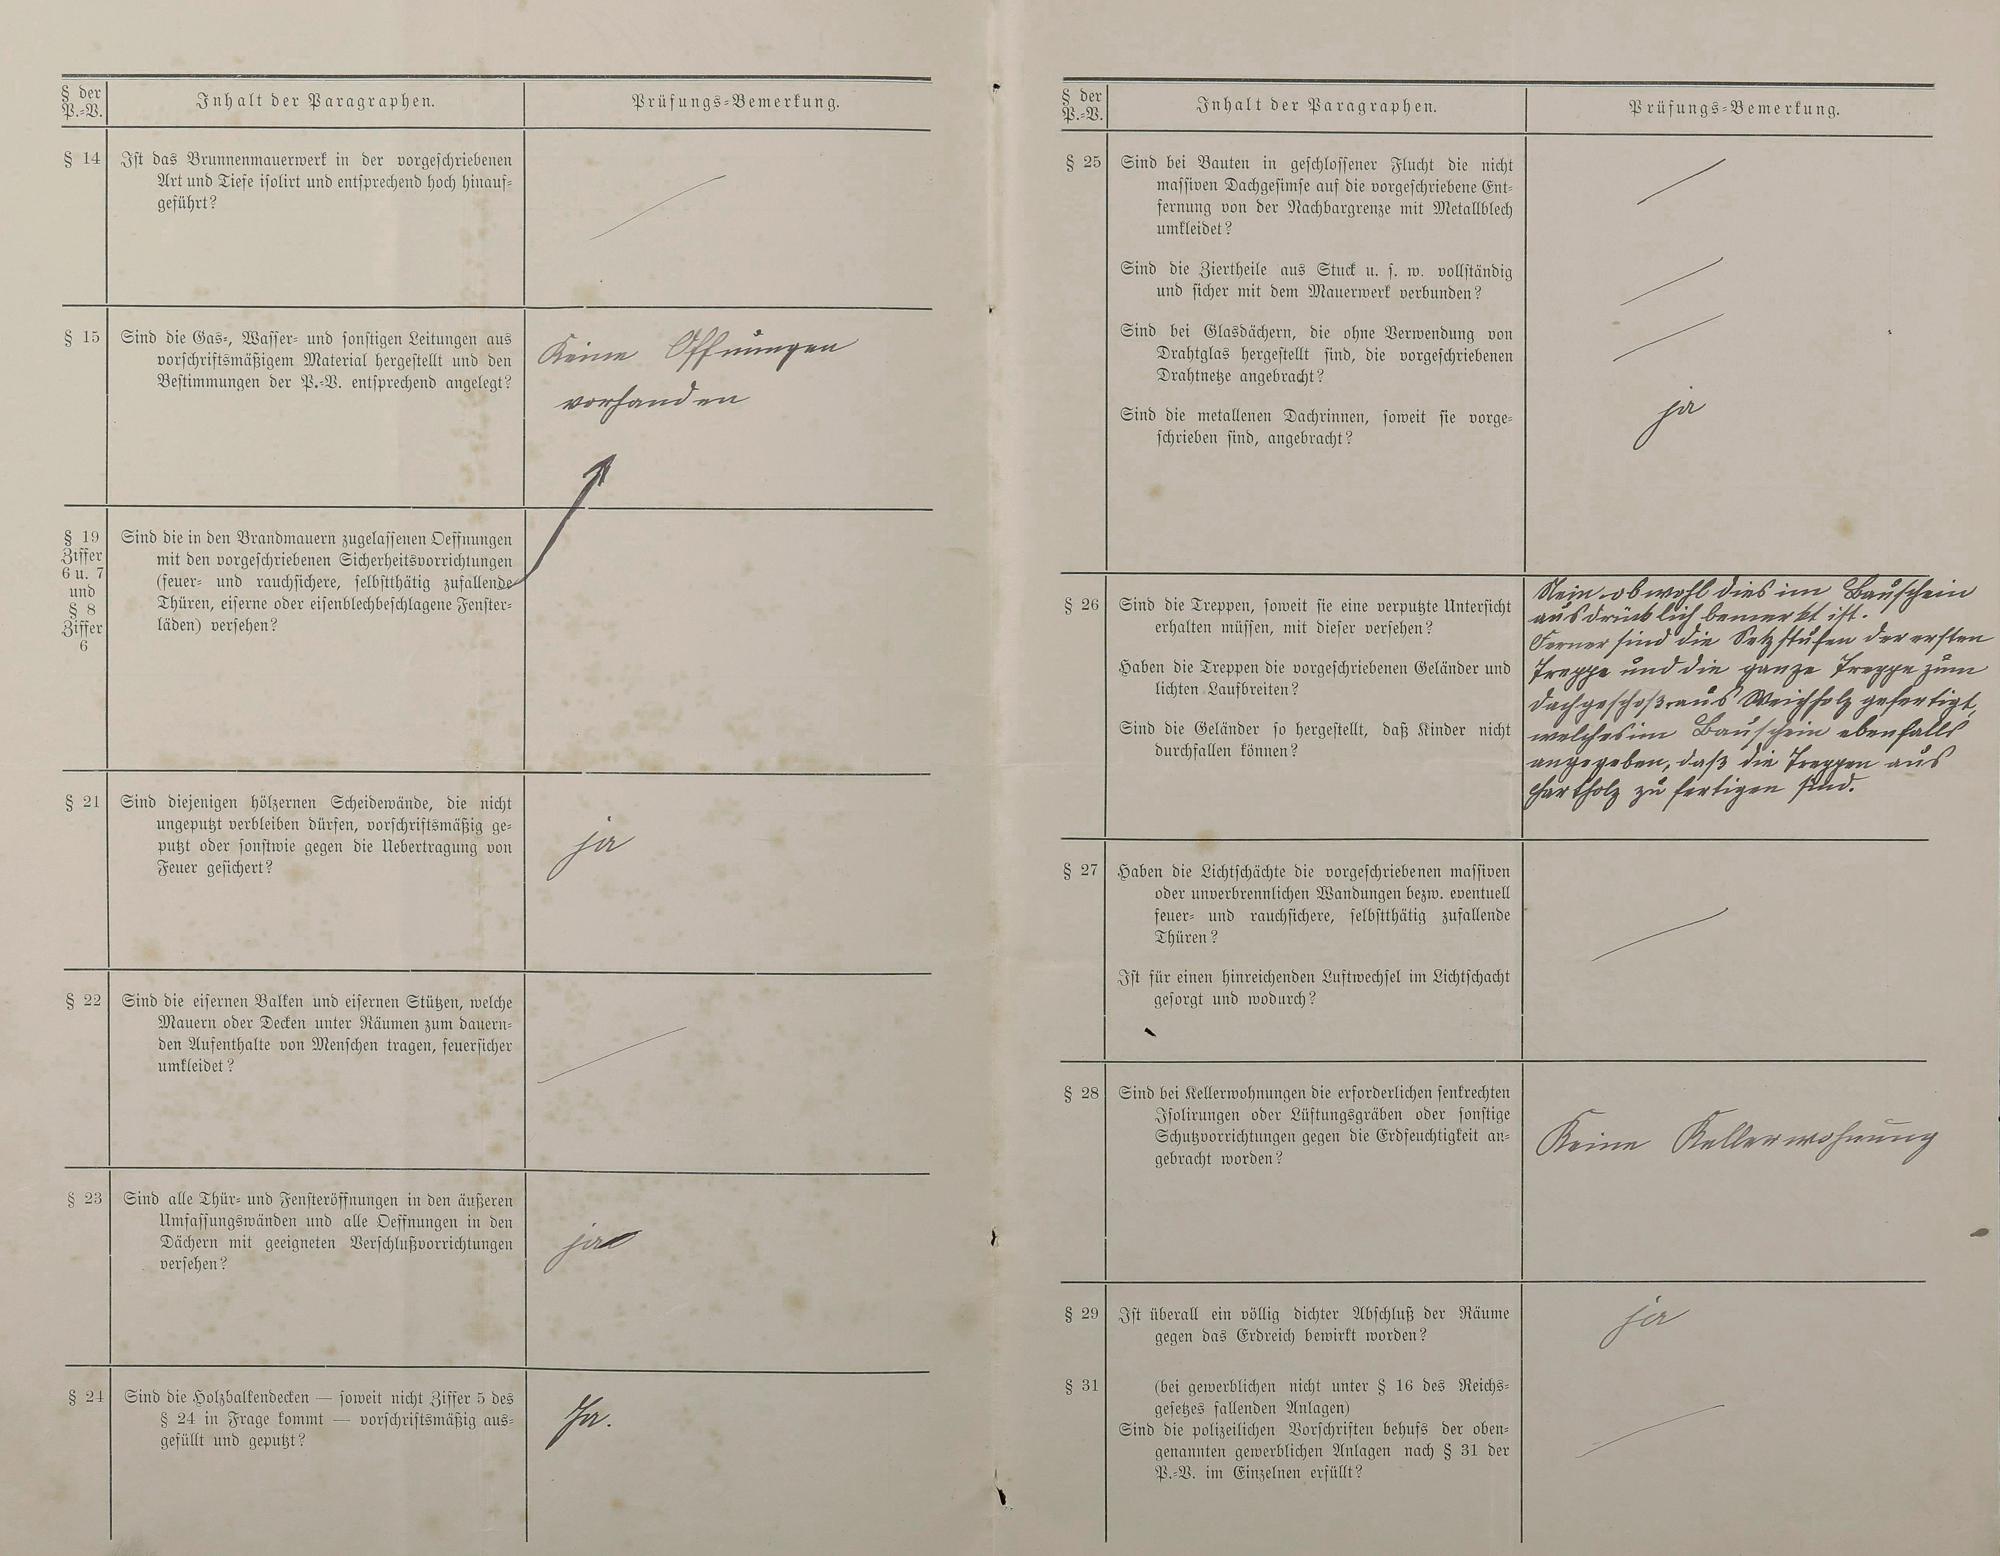 § der
P.-V.
Inhalt der Paragraphen.
Prüfungs-Bemerkung.
§ 14
Ist das Brunnenmauerwerk in der vorgeschriebenen
Art und Tiefe isolirt und entsprechend hoch hinauf-
geführt?
§ 15
Sind die Gas-, Wasser- und sonstigen Leitungen aus
vorschriftsmäßigem Material hergestellt und den
Bestimmungen der P.-V. entsprechend angelegt?
Keine Öffnungen
vorhanden
§ 19
Ziffer
6 u. 7
und
§ 8
Ziffer
6
Sind die in den Brandmauern zugelassenen Oeffnungen
mit den vorgeschriebenen Sicherheitsvorrichtungen
(feuer- und rauchsichere, selbstthätig zufallende
Thüren, eiserne oder eisenblechbeschlagene Fenster-
läden) versehen?
§ 21
Sind diejenigen hölzernen Scheidewände, die nicht
ungeputzt verbleiben dürfen, vorschriftsmäßig ge-
putzt oder sonstwie gegen die Uebertragung von
Feuer gesichert?
ja
§ 22
Sind die eisernen Balken und eisernen Stützen, welche
Mauern oder Decken unter Räumen zum dauern-
den Aufenthalte von Menschen tragen, feuersicher
umkleidet?
§ 23
Sind alle Thür- und Fensteröffnungen in den äußeren
Umfassungswänden und alle Oeffnungen in den
Dächern mit geeigneten Verschlußvorrichtungen
versehen?
ja
§ 24
Sind die Holzbalkendecken — soweit nicht Ziffer 5 des
§ 24 in Frage kommt — vorschriftsmäßig aus-
gefüllt und geputzt?
Ja.
§ der
P.-V.
Inhalt der Paragraphen.
Prüfungs-Bemerkung.
§ 25
Sind bei Bauten in geschlossener Flucht die nicht
massiven Dachgesimse auf die vorgeschriebene Ent-
fernung von der Nachbargrenze mit Metallblech
umkleidet?
Sind die Ziertheile aus Stuck u. s. w. vollständig
und sicher mit dem Mauerwerk verbunden?
Sind bei Glasdächern, die ohne Verwendung von
Drahtglas hergestellt sind, die vorgeschriebenen
Drahtnetze angebracht?
Sind die metallenen Dachrinnen, soweit sie vorge-
schrieben sind, angebracht?
ja
§ 26
Sind die Treppen, soweit sie eine verputzte Untersicht
erhalten müssen, mit dieser versehen?
Haben die Treppen die vorgeschriebenen Geländer und
lichten Laufbreiten?
Sind die Geländer so hergestellt, daß Kinder nicht
durchfallen können?
Nein obwohl dies im Bauschein
ausdrücklich bemerkt ist.
Ferner sind die Setzstufen der ersten
Treppe und die ganze Treppe zum
Dachgeschoß aus Weichholz gefertigt,
welches im Bauschein ebenfalls
angegeben, daß die Treppen aus
Hartholz zu fertigen sind.
§ 27
Haben die Lichtschächte die vorgeschriebenen massiven
oder unverbrennlichen Wandungen bezw. eventuell
feuer- und rauchsichere, selbstthätig zufallende
Thüren?
Ist für einen hinreichenden Luftwechsel im Lichtschacht
gesorgt und wodurch?
§ 28
Sind bei Kellerwohnungen die erforderlichen senkrechten
Isolirungen oder Lüftungsgräben oder sonstige
Schutzvorrichtungen gegen die Erdfeuchtigkeit an-
gebracht worden?
Keine Kellerwohnung
§ 29
Ist überall ein völlig dichter Abschluß der Räume
gegen das Erdreich bewirkt worden?
ja
§ 31
(bei gewerblichen nicht unter § 16 des Reichs-
gesetzes fallenden Anlagen)
Sind die polizeilichen Vorschriften behufs der oben-
genannten gewerblichen Anlagen nach § 31 der
P.-V. im Einzelnen erfüllt?